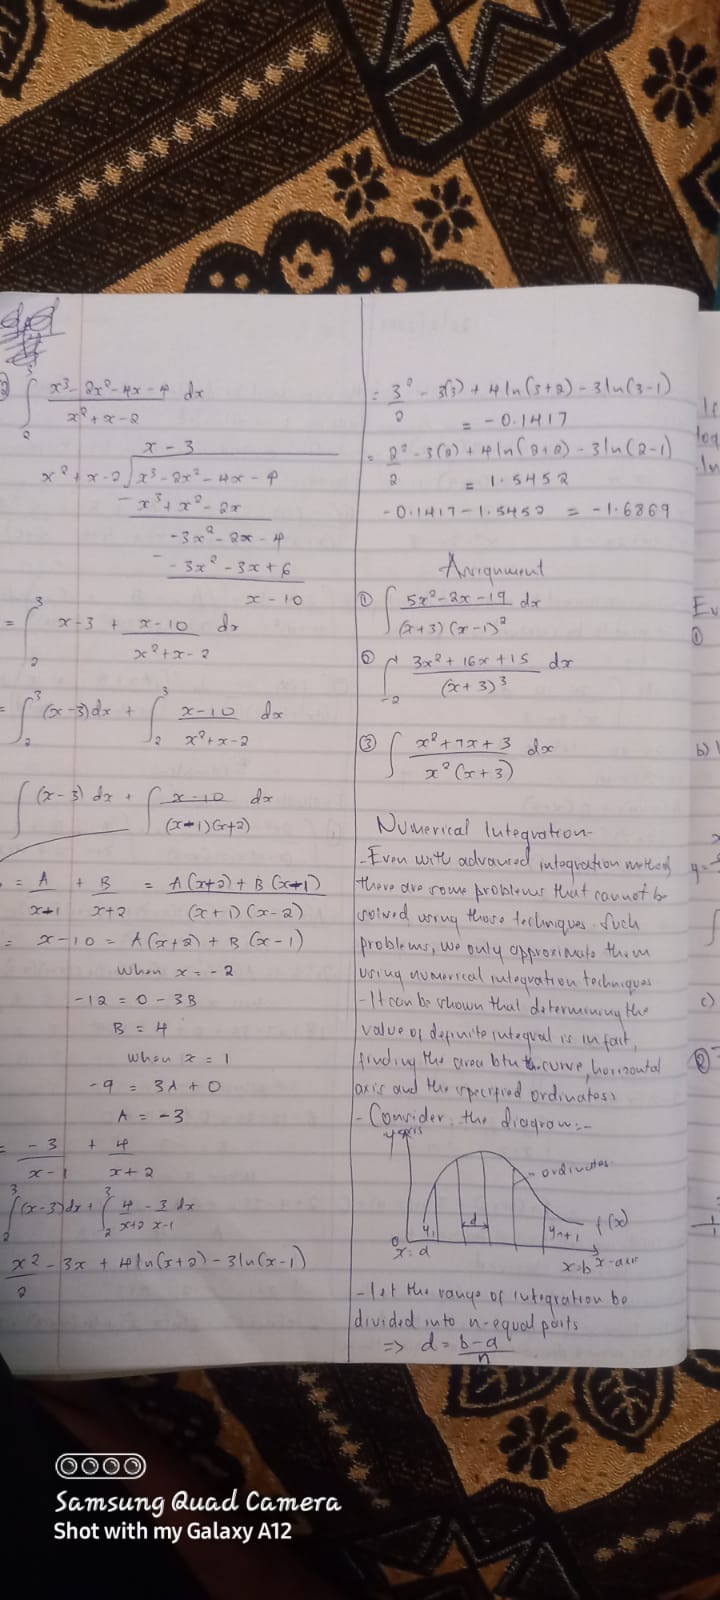 3
∫ x³ - 2x² - 4x - 4 dx
x² + x - 2
2
x - 3
x² + x - 2 √ x³ - 2x² - 4x - 4
- x³ + x² - 2x
- 3x² - 2x - 4
- - 3x² - 3x + 6
x - 10
= ∫₂³ x - 3 + x - 10 dx
x² + x - 2
= ∫₂³ (x - 3) dx + ∫₂³ x - 10 dx
x² + x - 2
∫ (x - 3) dx + ∫ x - 10 dx
(x - 1)(x + 2)
= A + B = A(x+2) + B(x-1)
x-1 x+2 (x+1)(x-2)
= x - 10 = A(x+2) + B(x-1)
When x = -2
-12 = 0 - 3B
B = 4
When x = 1
-9 = 3A + 0
A = -3
= -3 + 4
x - 1 x + 2
∫₂³ (x-3)dx + ∫₂³ 4 - 3 dx
x+2 x-1
x² - 3x + 4ln(x+2) - 3ln(x-1)
2
= 3² - 3(3) + 4ln(3+2) - 3ln(3-1)
2 = -0.1417
= 2² - 3(2) + 4ln(2+2) - 3ln(2-1)
2 = 1.5452
-0.1417 - 1.5452 = -1.6869
Assignment
① ∫ 5x² - 2x - 19 dx
(x+3)(x-1)²
② ∫ 3x² + 16x + 15 dx
-2 (x+3)³
③ ∫ x² + 7x + 3 dx
x²(x+3)
Numerical Integration-
- Even with advanced integration methods
there are some problems that cannot be
solved using those techniques. Such
problems, we only approximate them
using numerical integration techniques
- It can be shown that determining the
value of definite integral is in fact,
finding the area btn the curve, horizontal
axis and the specified ordinates.
- Consider the diagram:-
y-axis
ordinates
y₁ d yn+1 f(x)
0
x=a x=b x-axis
- let the range of integration be
divided into n-equal parts
=> d = b-a
n
Ev
①
b)
c)
②
Samsung Quad Camera
Shot with my Galaxy A12